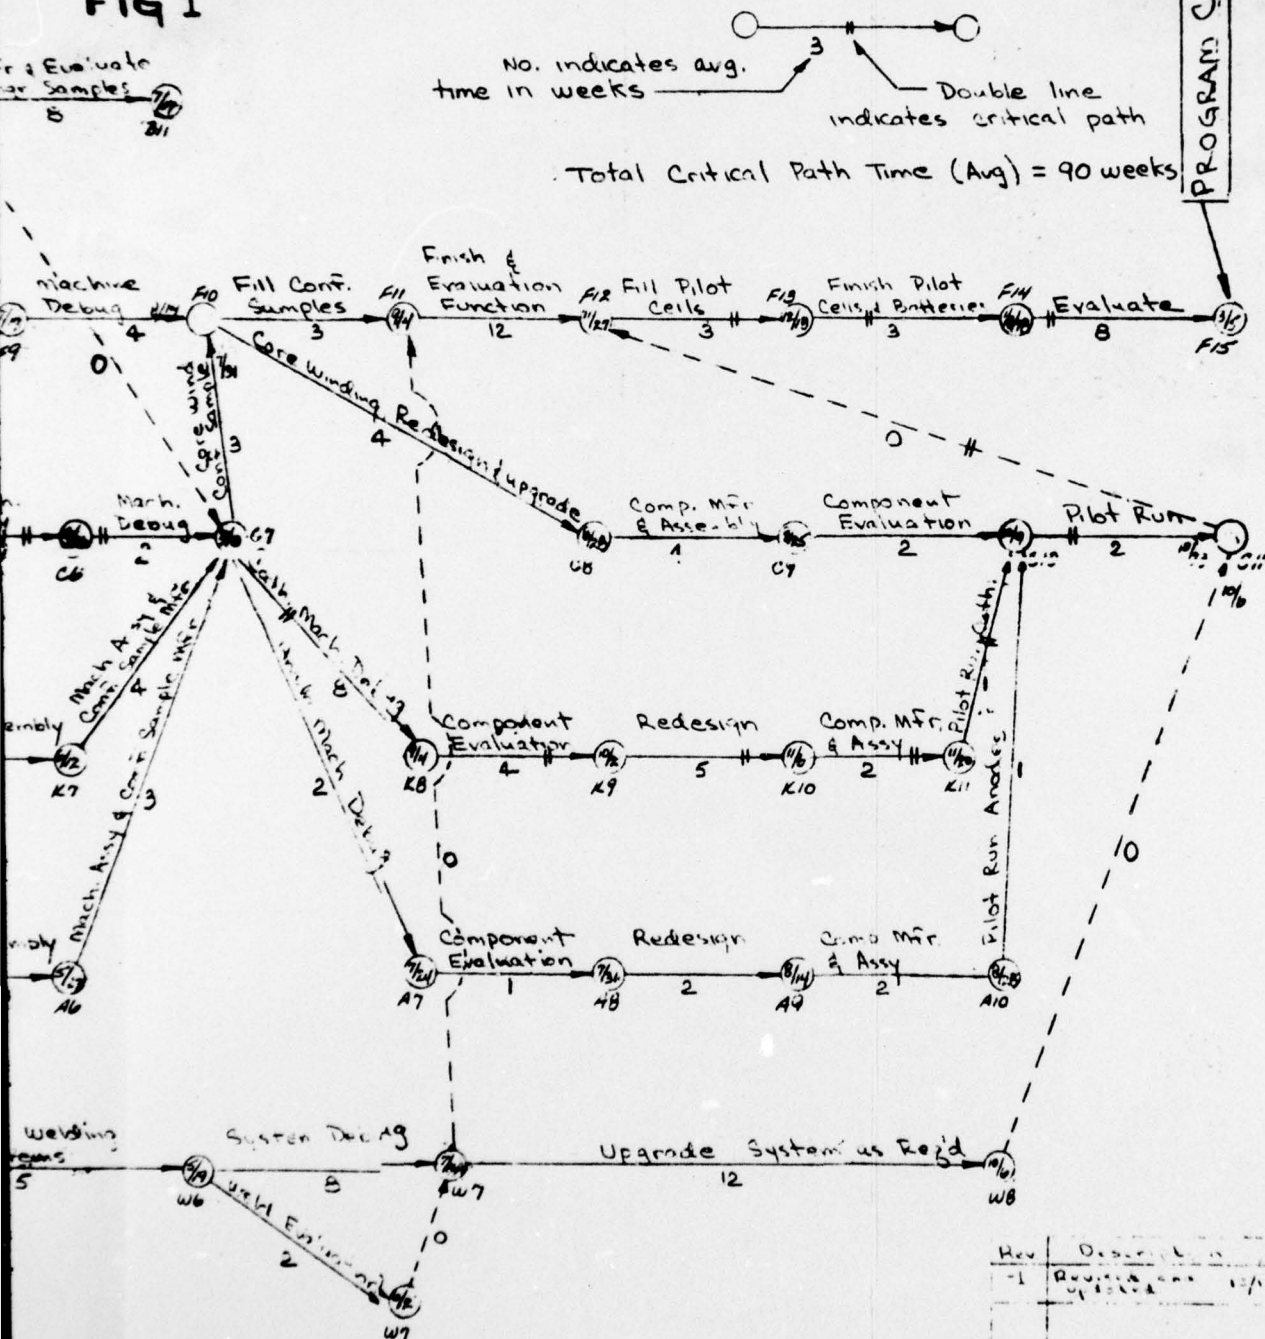 FIG 1
3
No. indicates avg.
time in weeks
Double line
indicates critical path
Total Critical Path Time (Avg) = 90 weeks
PROGRAM
& Evaluate
Samples
8
B11
Machine
Debug
4
F9
F10
Fill Cont.
Samples
3
F11
9/4
Finish &
Evaluation
Function
12
F12
11/27
Fill Pilot
Cells
3
F13
Finish Pilot
Cells & Batteries
3
F14
Evaluate
8
3/15
F15
0
Core Wind
Cont Sample
7/31
3
Core Winding Redesign & upgrade
4
0
Mach.
Debug
2
C6
C7
C8
Comp. Mfr
& Assembly
1
C9
Component
Evaluation
2
Pilot Run
2
10/6
Mach Assy &
Cont. Sample Mfr
4
Mach. Assy & Cont Sample Mfr
3
Cath. Mach. Debug
8
Mach Debug
2
embly
K7
9/4
K8
Component
Evaluation
4
10/2
K9
Redesign
5
11/6
K10
Comp. Mfr.
& Assy
2
K11
Pilot Run Cath.
Pilot Run Anodes
1
0
0
mbly
A6
7/24
A7
Component
Evaluation
1
7/31
A8
Redesign
2
8/14
A9
Comp Mfr.
& Assy
2
A10
welding
5
5/19
W6
System Debug
8
W7
Upgrade System as Req'd
12
10/6
W8
Weld Evaluation
2
0
W7
Rev
Description
-1
Revised and
updated